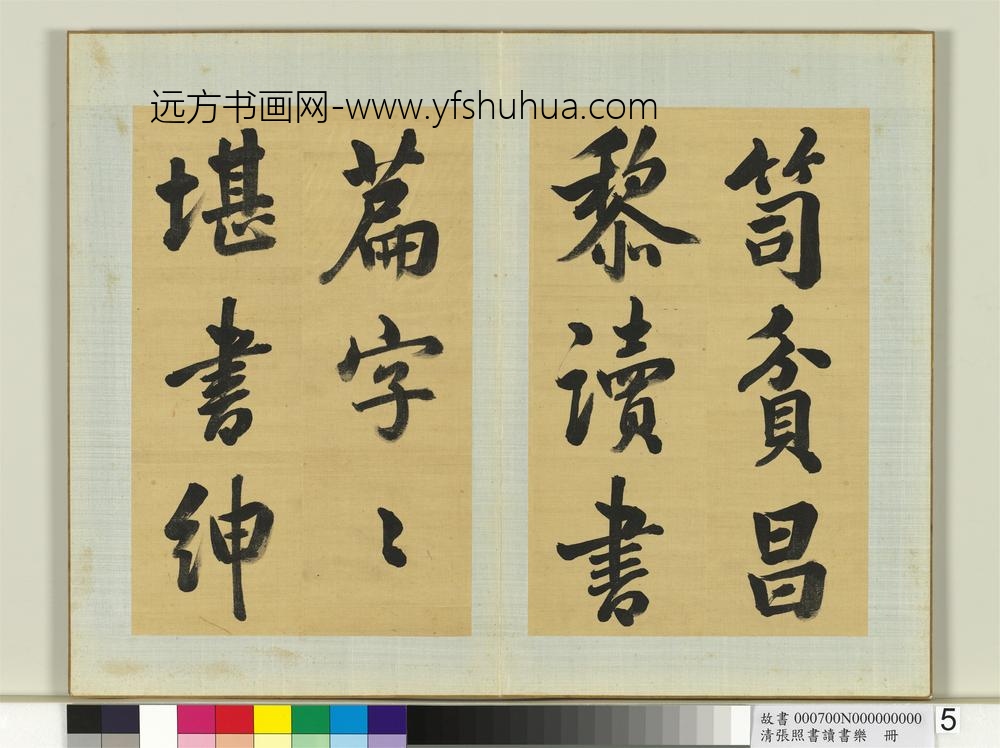 远方书画网-www.yfshuhua.com
笥貧昌
黎讀書
篇字〻
堪書紳
故書 000700N000000000
清張照書讀書樂 冊
5